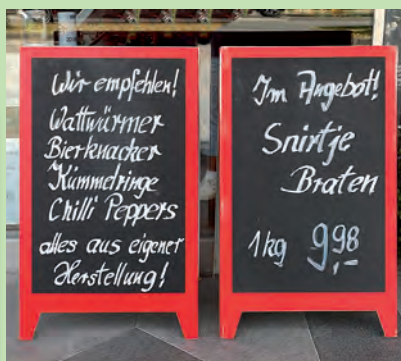 Wir empfehlen!
Wattwürmer
Bierknacker
Kümmelringe
Chilli Peppers
alles aus eigener
Herstellung!
Im Angebot!
Snirtje
Braten
1 kg 9,98